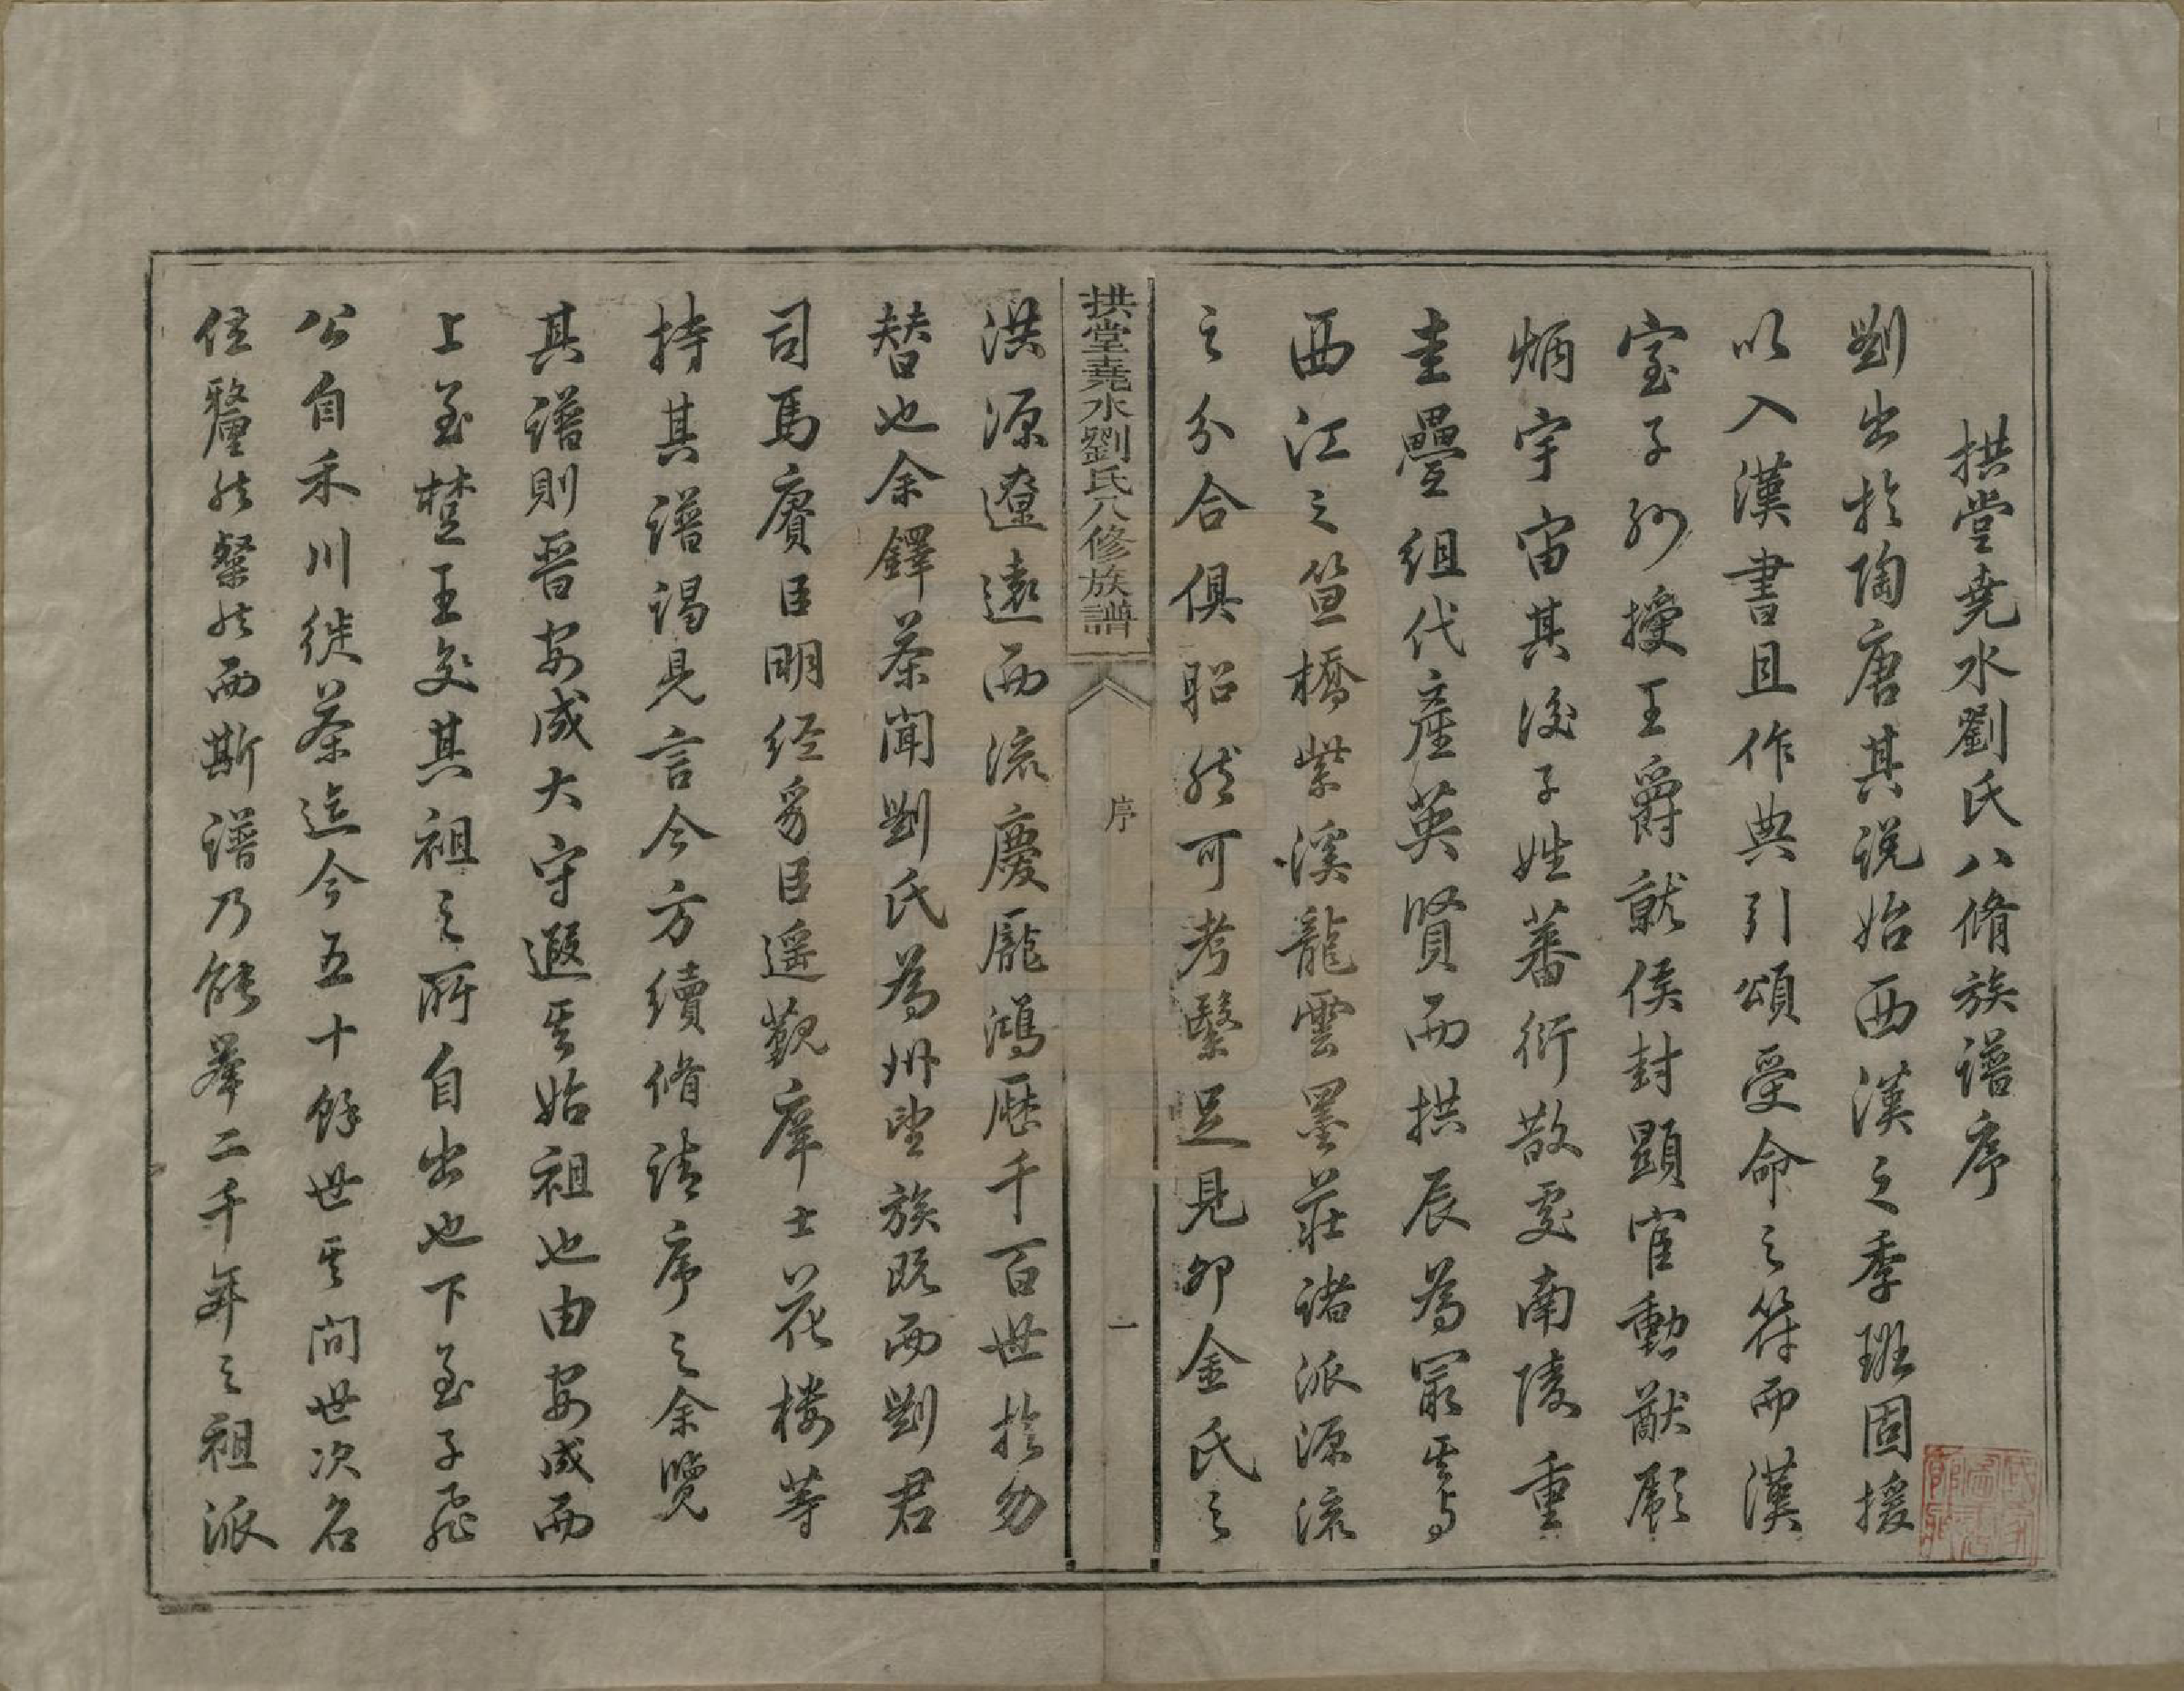 拱堂堯水劉氏八脩族譜序
劉出於陶唐其說始西漢之季班固援
以入漢書且作典引頌受命之符而漢
室子孙授王爵就侯封顯宦勳猷
炳宇宙其後子姓蕃衍散處南陵重
圭疊組代產英賢而拱辰為冣其
西江之笪橋紫溪龍雲墨莊諸派源流
之分合俱昭然可考繄足見卯金氏之
拱堂堯水劉氏八修族譜
序
一
洪源遼遠而流慶龐鴻歷千百世於勿
替也余鐸茶聞劉氏為州望族既而劉君
司馬賡臣明经豸臣遥觐庠士花楼等
持其譜謁見言今方續脩請序之余覽
其譜則晋安成大守遐其始祖也由安成而
上至楚王交其祖之所自出也下至子飛
公自禾川徙茶迄今五十餘世其间世次名
位釐然粲然而斯譜乃能举二千年之祖派
國家圖書館